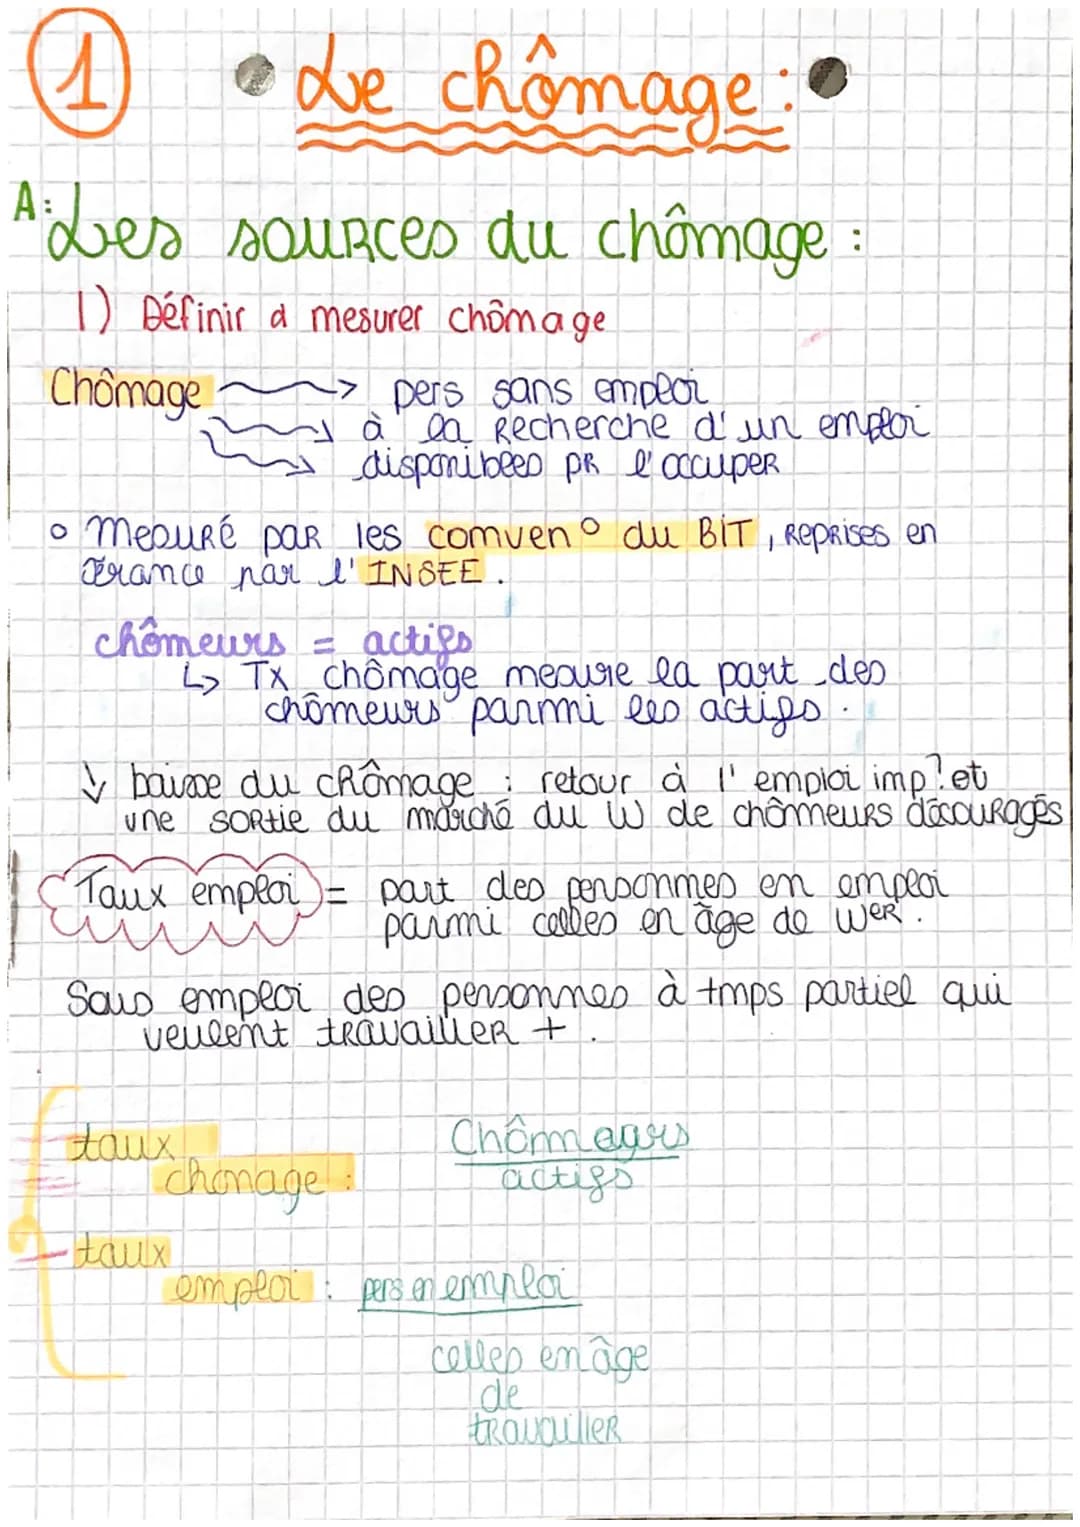 1
Le chômage :
A: Les sources du chômage :
1) Définir & mesurer chômage
Chômage → pers sans emploi
→ à la recherche d'un emploi
→ disponibles pr l'occuper
° Mesuré par les conven° du BIT, reprises en
France par l'INSEE.
chômeurs = actifs
↳ Tx chômage mesure la part des
chômeurs parmi les actifs.
↓ baisse du chômage : retour à l'emploi imp! et
une sortie du marché du W de chômeurs découragés
Taux emploi = part des personnes en emploi
parmi celles en âge de Wer.
Sous emploi des personnes à tmps partiel qui
veulent travailler +.
taux
chonage : Chômeurs
actifs
taux
emploi : pers en emploi
celles en âge
de
travailler